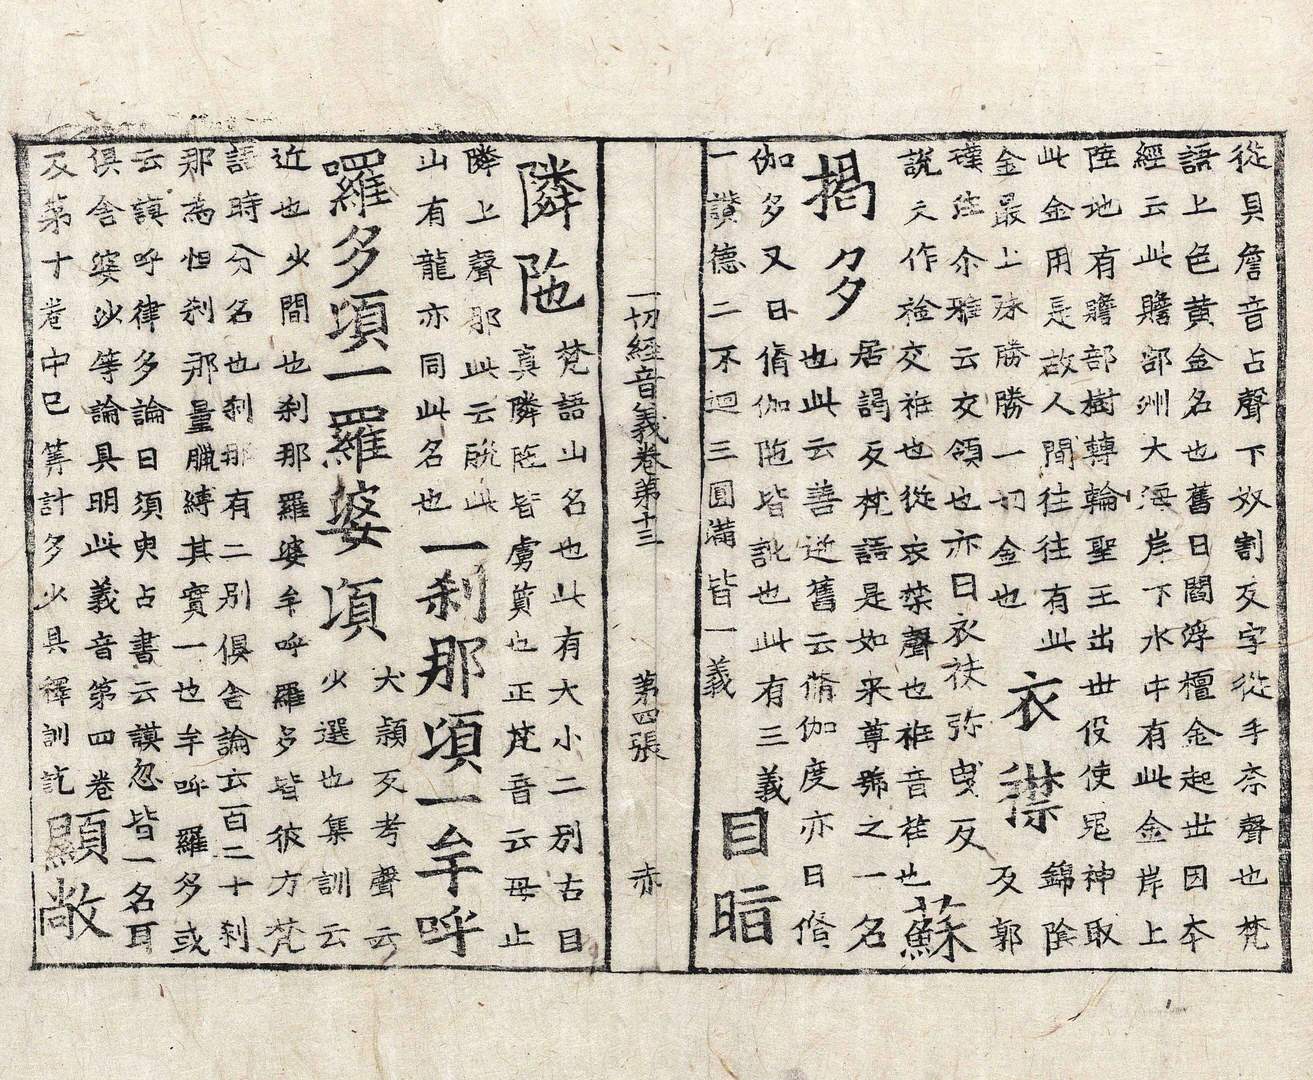 從具詹音占聲下奴割反字從手奈聲也梵
語上色黄金名也舊曰閻浮檀金起世因本
經云此贍部洲大海岸下水中有此金岸上
陸地有贍部樹轉輪聖王出世役使鬼神取
此金用是故人間往往有此
金最上殊勝勝一切金也
衣襟
錦陰
反郭
璞注尒雅云交領也亦曰衣袂弥曳反
說文作裣交衽也從衣禁聲也衽音荏也
蘇
揭多
居謁反梵語是如來尊號之一名
也此云善逝舊云脩伽度亦曰脩
伽多又曰脩伽陁皆訛也此有三義
一讚德二不迴三圓满皆一義
目
一切經音義卷第十三 第四張 赤
隣陁
梵語山名也此有大小二别古目
真隣陁皆虜質也正梵音云母止
隣上聲那此云脫此
山有龍亦同此名也
一刹那頃一牟呼
囉多頃一羅婆頃
犬潁反考聲云
少選也集訓云
近也少間也刹那羅婆牟呼羅多皆彼方梵
語時分名也刹那有二别俱舍論云百二十刹
那為怛刹那量臘縛其實一也牟呼羅多或
云謨呼律多論曰須臾占書云謨忽皆一名耳
俱舍婆沙等論具明此義音第四卷
及第十卷中已筭計多少具釋訓訖
顯敞